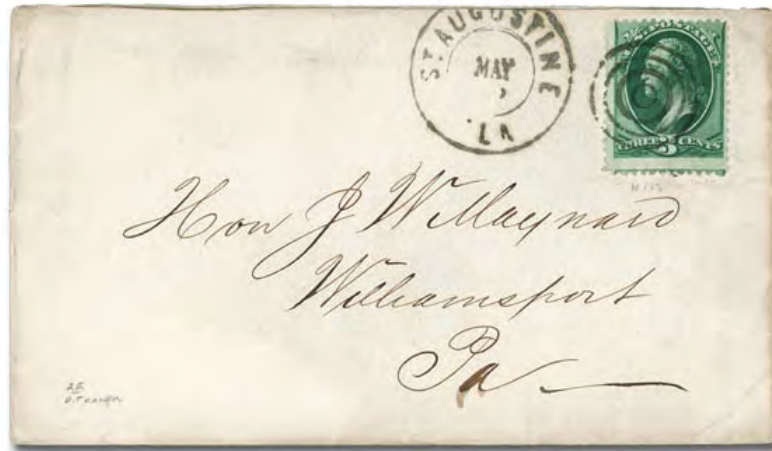 ST. AUGUSTINE
MAY
LA
U.S. POSTAGE
THREE 3 CENTS
Hon J W Maynard
Williamsport
Pa